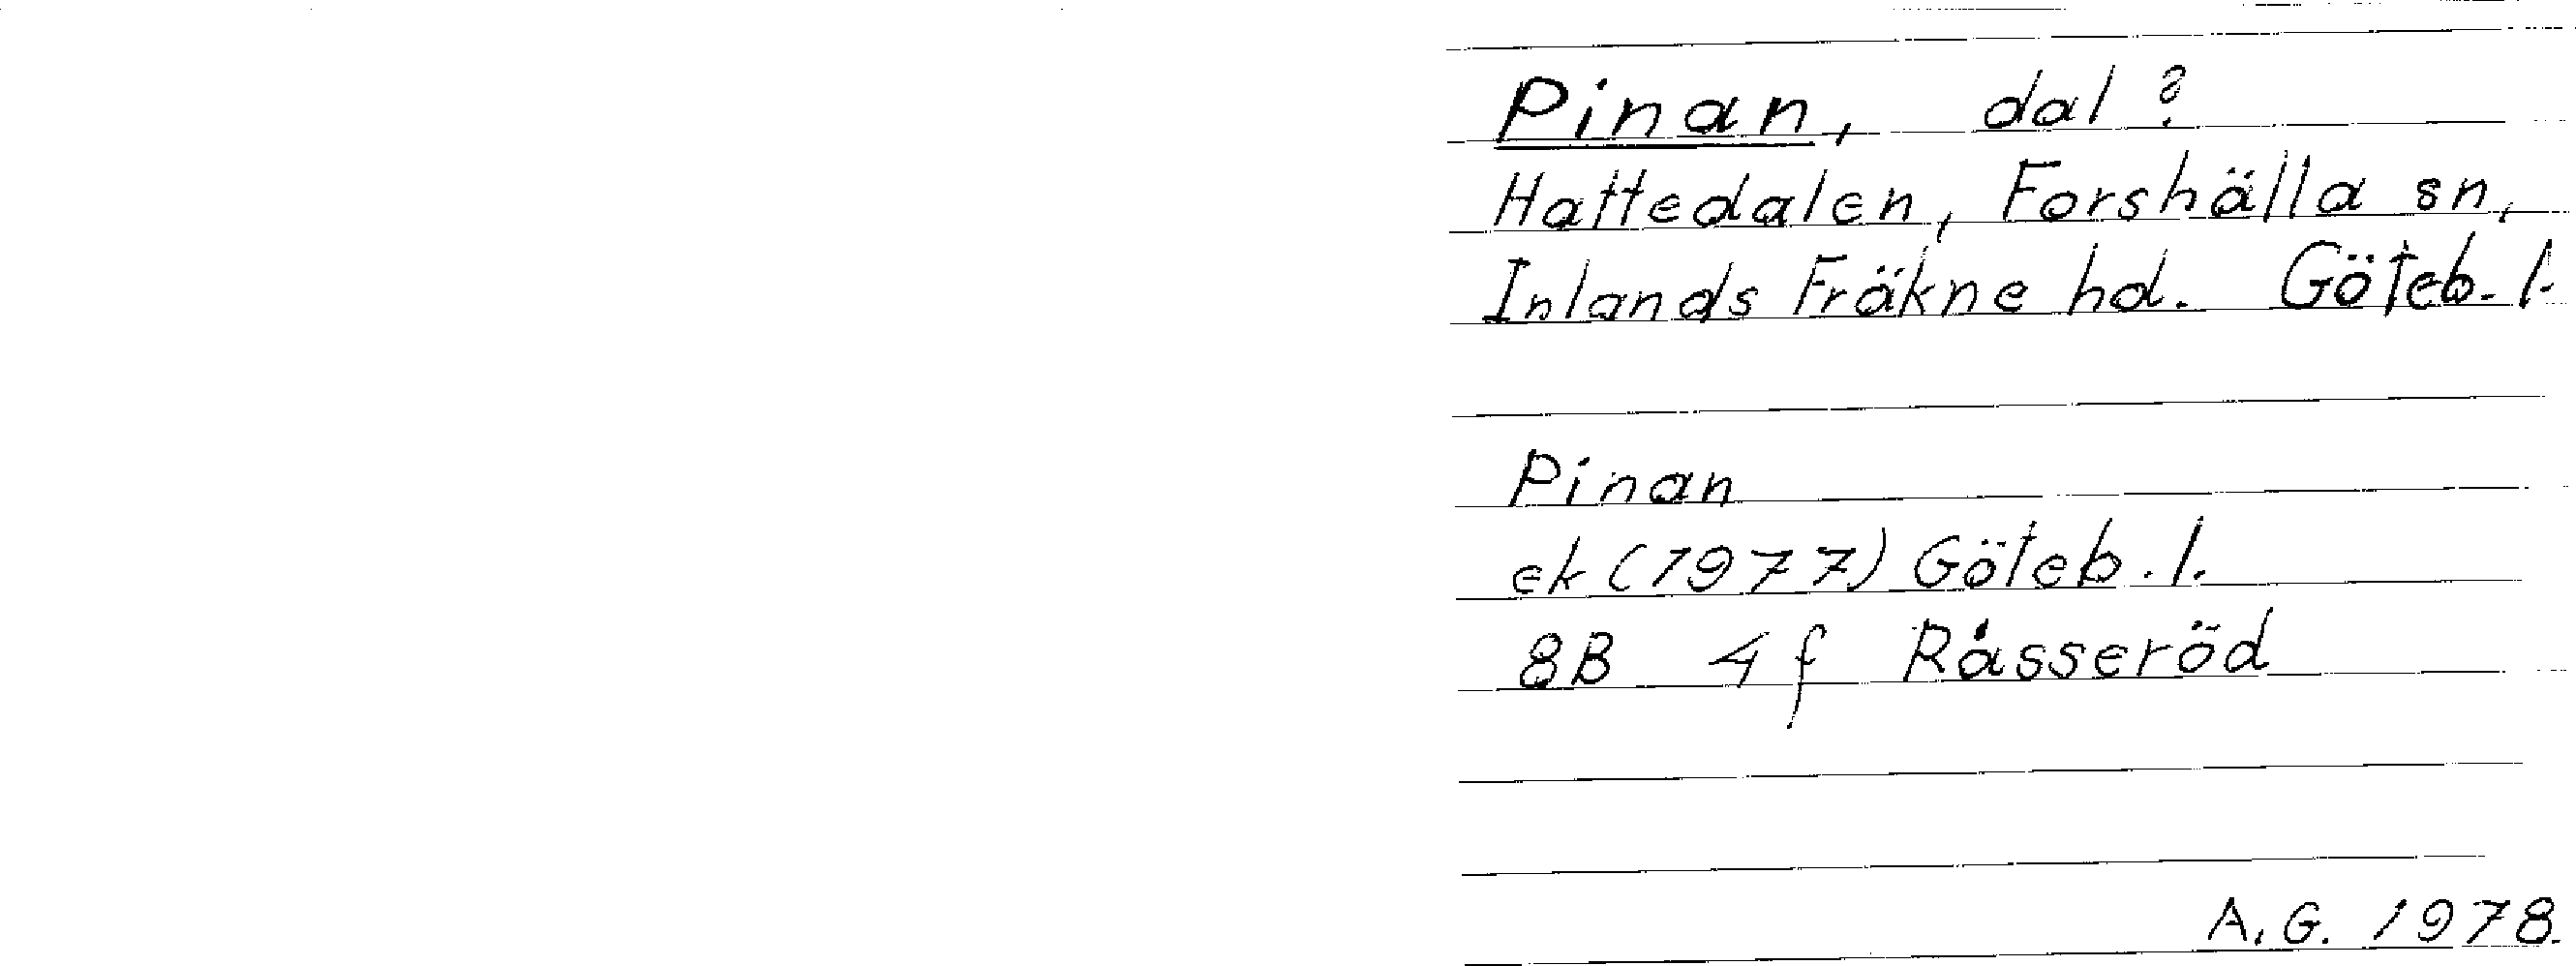 Pinan, dal?
Hattedalen, Forshälla sn,
Inlands Fräkne hd. Göteb. l.
Pinan
ek (1977) Göteb. l.
8B 4f Råsseröd
A. G. 1978.